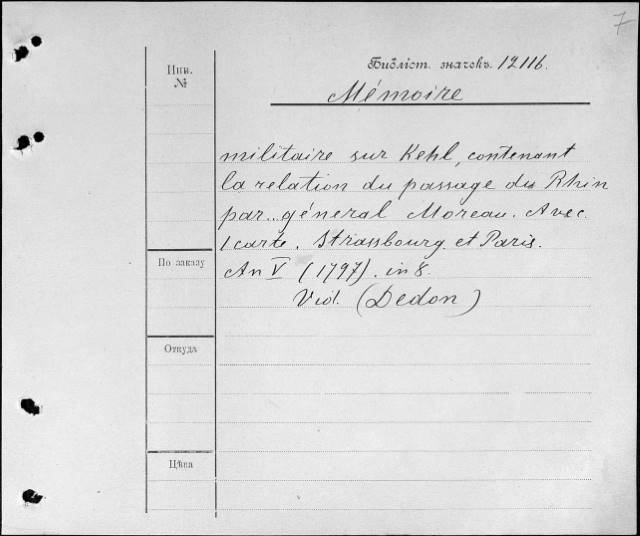 7
Инв.
№
Библіот. значекъ 12116.
Mémoire
militaire sur Kehl, contenant
la relation du passage du Rhin
par .. général Moreau. Avec
1 carte. Strassbourg et Paris.
An V (1797). in 8.
Vid. (Dedon)
По заказу
Откуда
Цѣна